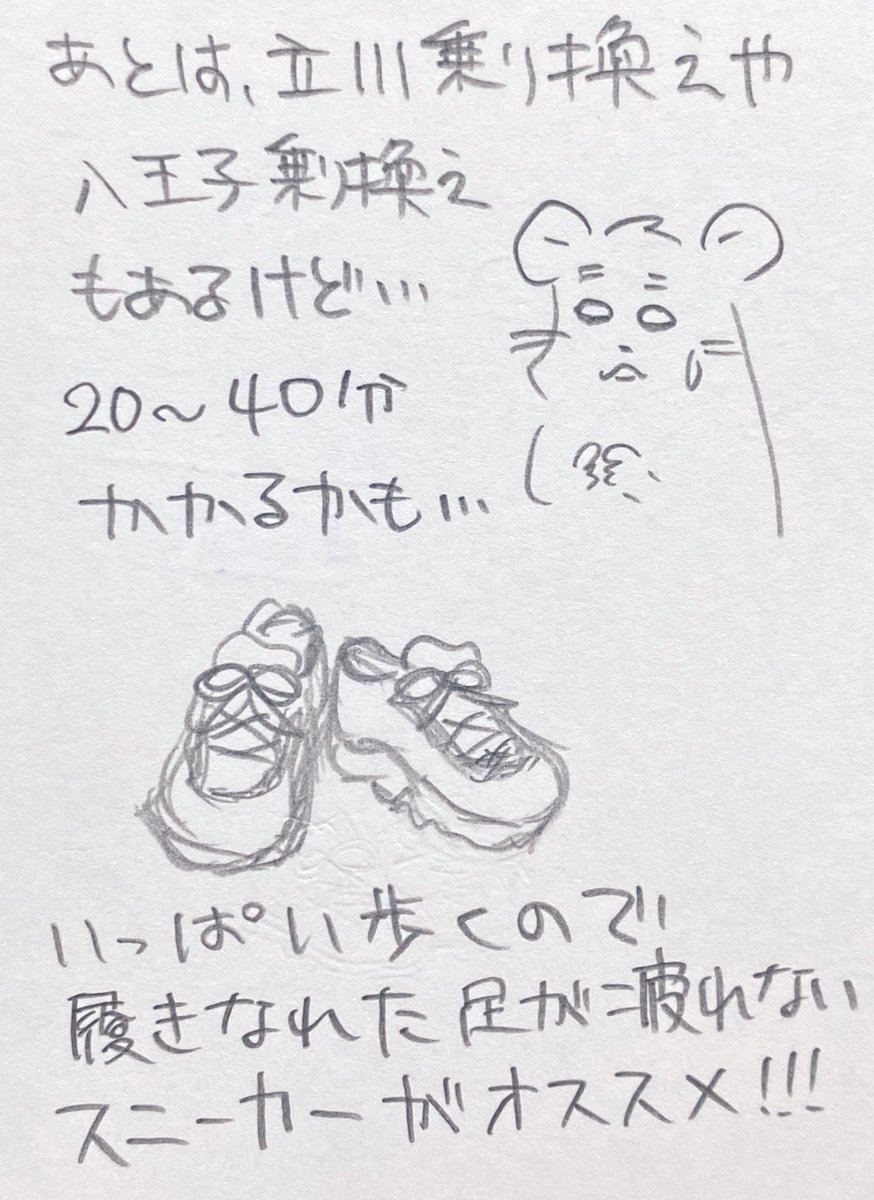 あとは、立川乗り換えや
八王子乗り換え
もあるけど…
20〜40分
かかるかも…
いっぱい歩くので
履きなれた足が疲れない
スニーカーがオススメ!!!